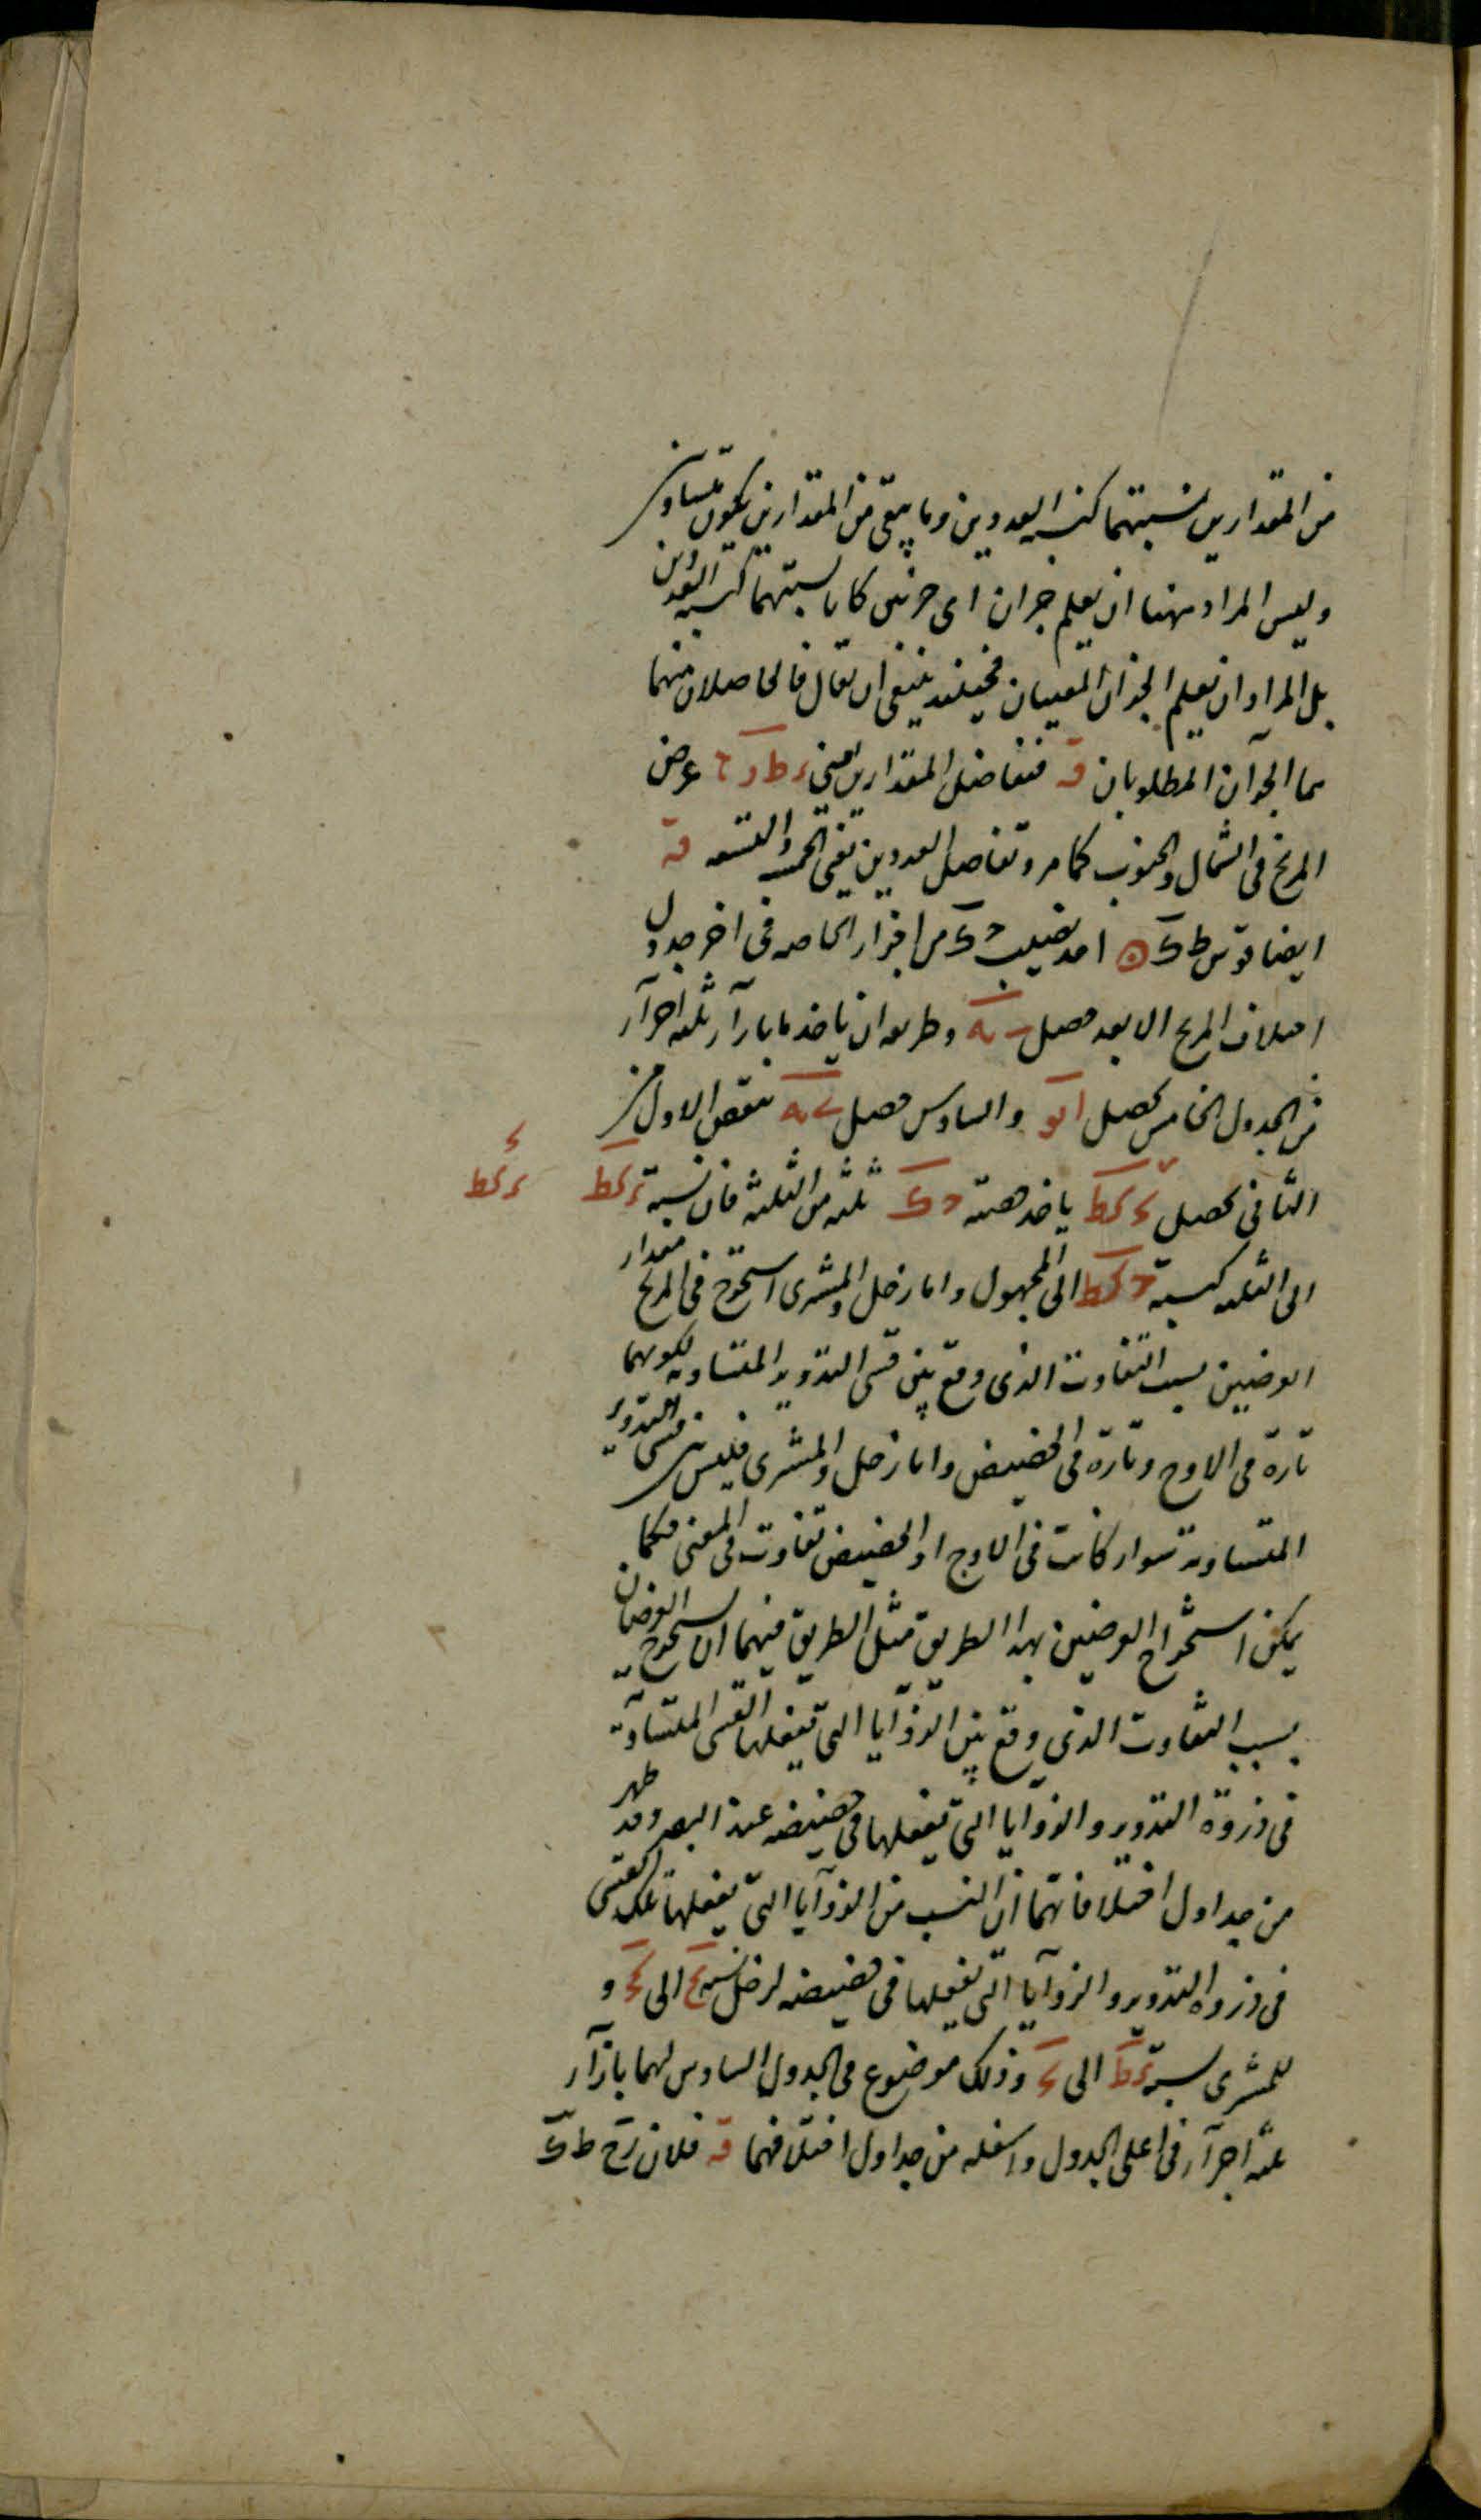 من المقدارين نسبتهما كنسبة العددين وما يبقى من المقدارين يكون متساويين
وليس المراد ههنا ان يعلم جزآن اى جزئين كانا نسبتهما كنسبة العددين
بل المراد ان يعلم الجزآن المعينان فحينئذ ينبغى ان يقال فالحاصلان منهما
هما الجزآن المطلوبان قه فتفاضل المقدارين اعنى عرض
المريخ فى الشمال والجنوب كما مر وتفاضل العددين يعنى الخمسة والتسعة قه
ايضا قوس ط ك اخذ نصيب من اجزاء الخاصه فى اخر جدول
اختلاف المريخ الابعد حصل وطريقه ان ياخذ ما بازآء ثلثه اجزآء
من الجدول الخامس يحصل والسادس حصل ينقص الاول من
الثانى يحصل ياخذ حصته ثلثه من الثلثة فان نسبة د كط
الى الثلثه كنسبة الى المجهول واما زحل والمشترى استخرج فى المريخ مقدار
العرضين بسبب التفاوت الذى وقع بين قسى التدوير المتساويه لكونها
تارة فى الاوج وتارة فى الحضيض واما زحل والمشترى فليس بين قسى التدوير
المتساوية سواء كانت فى الاوج او الحضيض تفاوت فى المعنى فكما
يمكن استخراج العرضين بهذا الطريق مثل الطريق فيهما ان يستخرج العرضان
بسبب التفاوت الذى وقع بين الزوآيا التى تفعلها القسى المتساوية
فى ذروة التدوير والزوآيا التى تفعلها فى حضيضه عند البصر وقد ظهر
من جداول اختلافاتهما ان النسب من الزوآيا التى تفعلها تلك القسى
فى ذروه التدوير والزوآيا التى تفعلها فى حضيضه لزحل نسبة الى و
للمشترى نسبة كط الى وذلك موضوع فى الجدول السادس لهما بازآء
اجزآء فى اعلى الجدول واسفله من جداول اختلافهما قه فلان رح ط ك